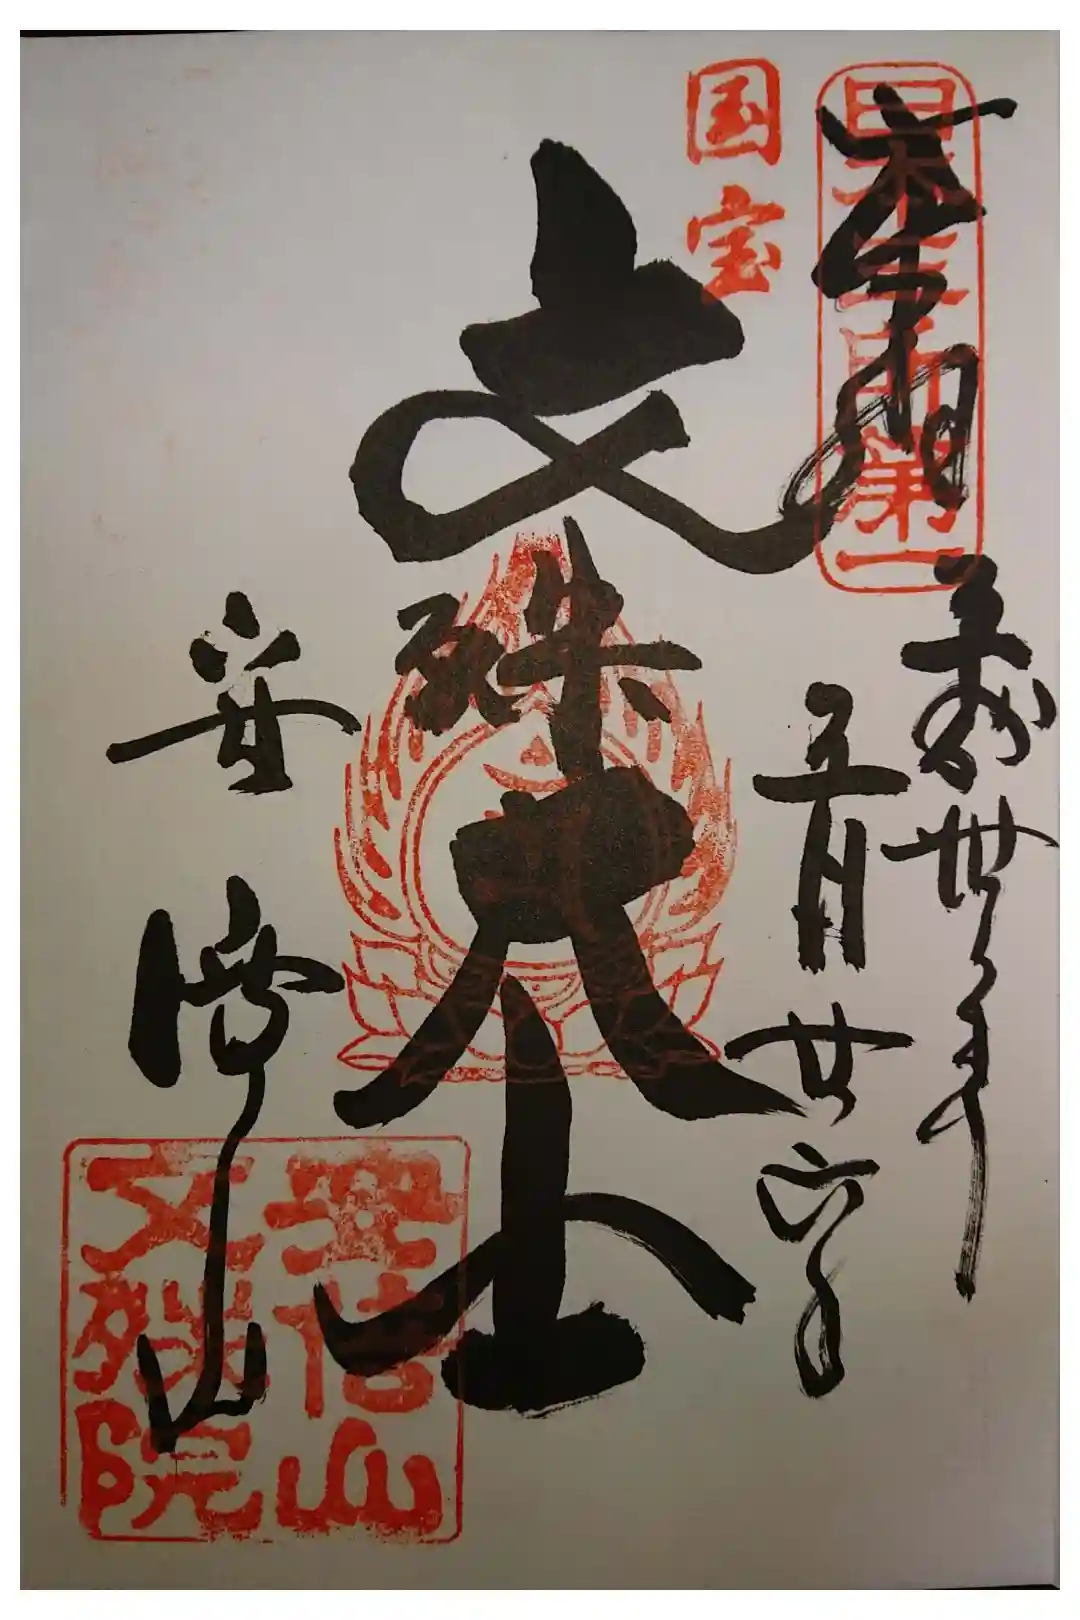 奉拝
平成卅年
五月廿六日
日本三文殊第一
国宝
文殊大士
安倍山
安倍山
文殊院